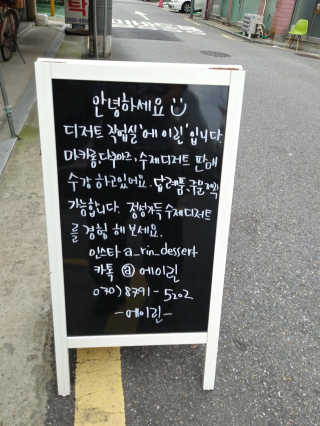 안녕하세요
디저트 작업실 '에이린' 입니다.
마카롱, 다쿠아즈, 수제디저트 판매
수강 하고있어요. 답례품, 주문 제작
가능합니다. 정성가득 수제디저트
를 경험 해 보세요.
인스타 a_rin_dessert
카톡 @ 에이린
070) 8791-5202
-에이린-